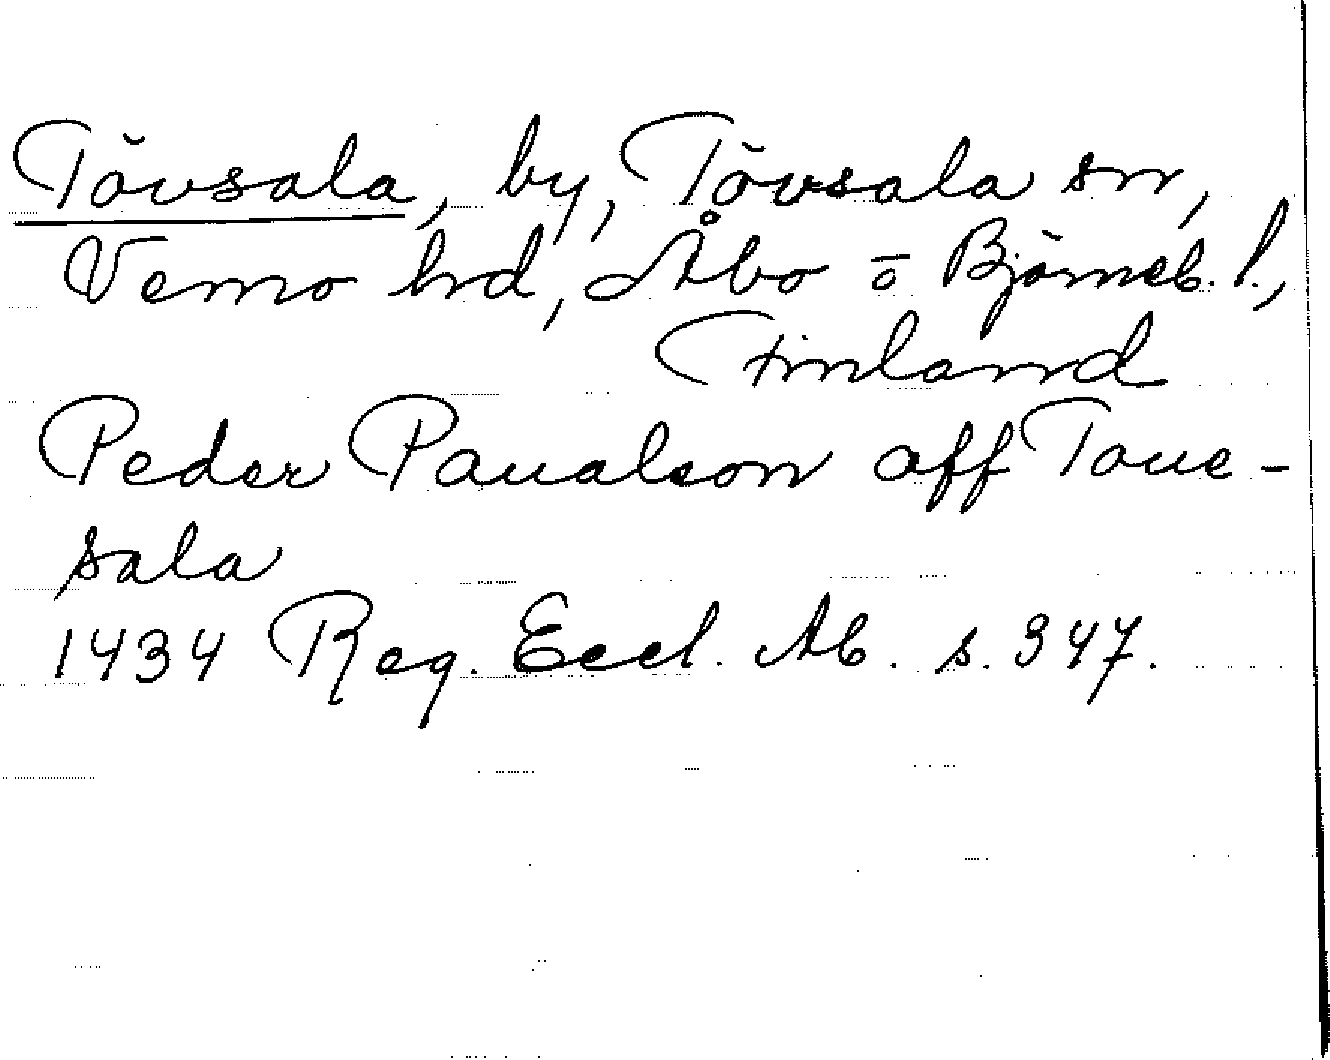 Tövsala, by, Tövsala sn,
Vemo hd, Åbo o Björneb. l.,
Finland
Peder Paualson aff Toue-
sala
1434 Reg. Eccl. Ab. s. 347.